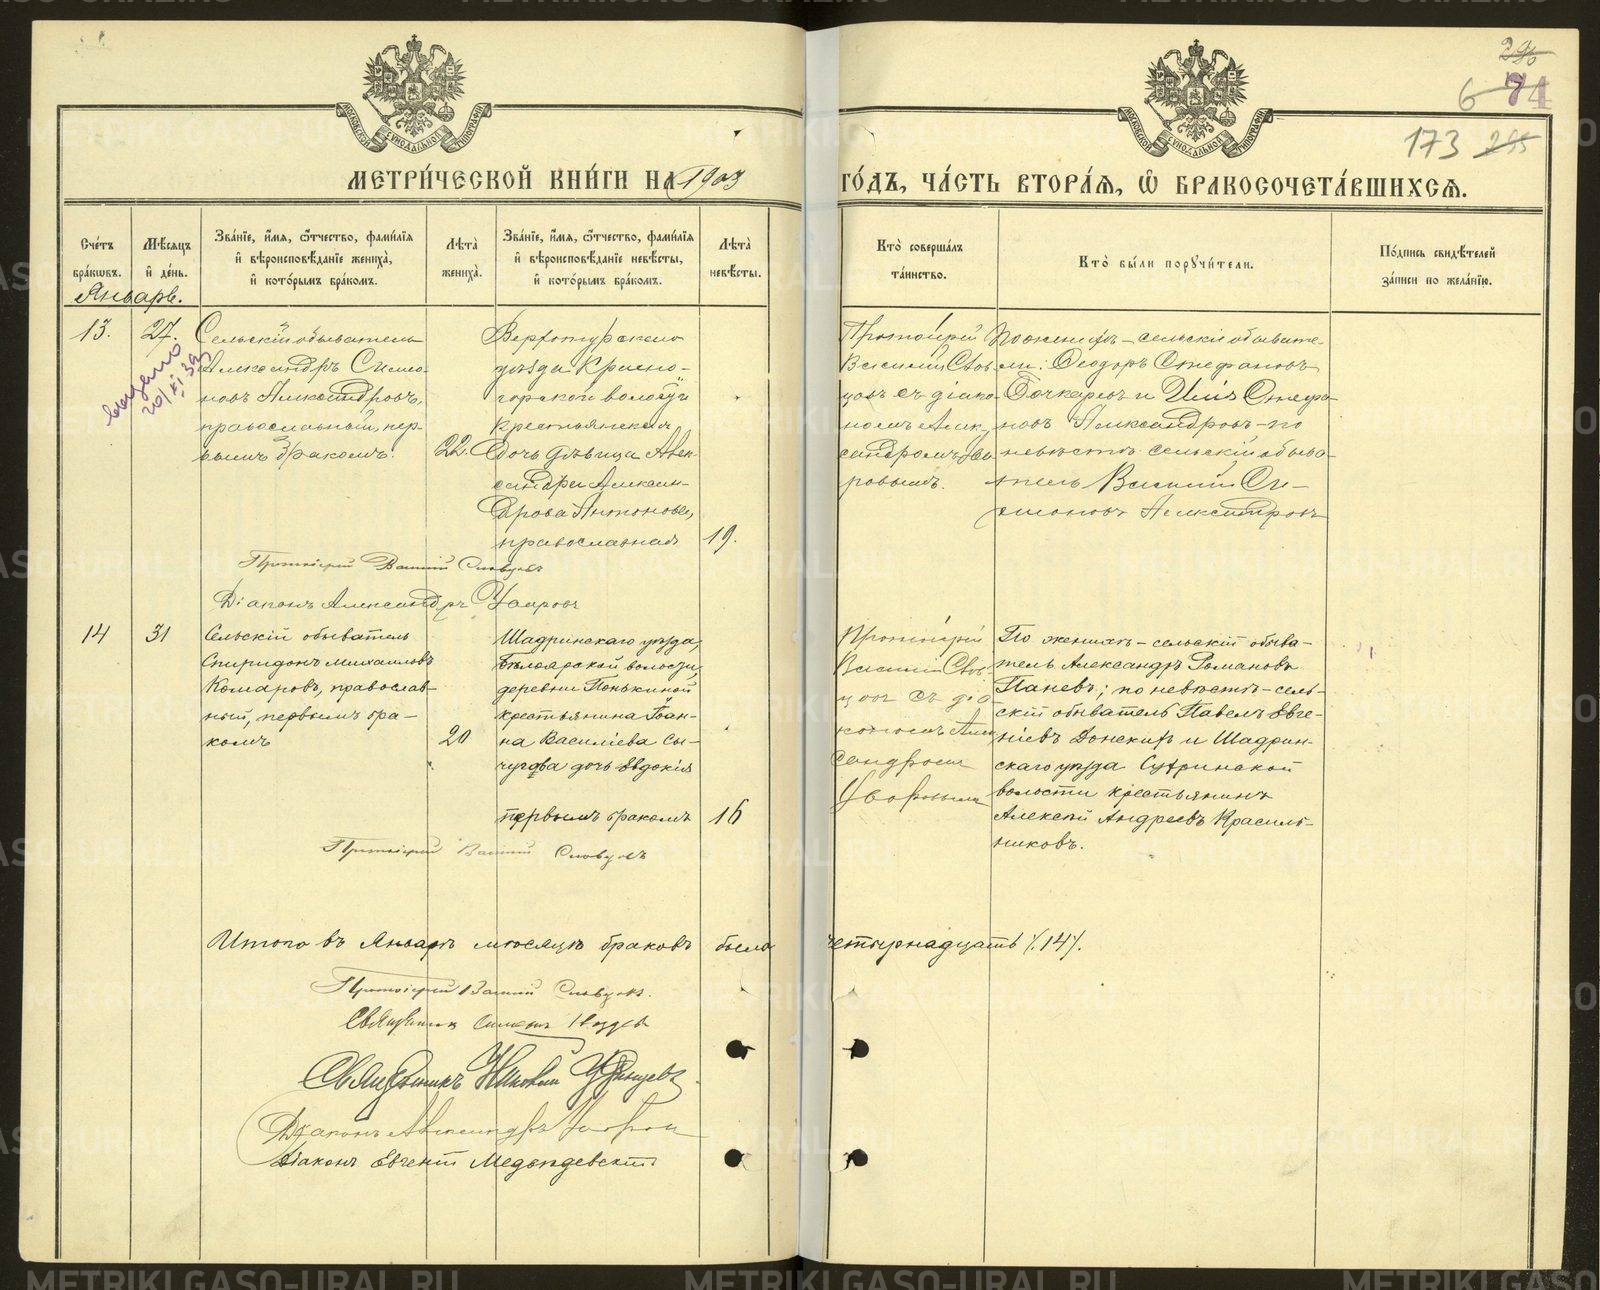 МЕТРИ́ЧЕСКОЙ КНИ́ГИ НА 1903
ГО́ДЪ, ЧА́СТЬ ВТОРА́Я, Ѽ БРАКОСОЧЕТА́ВШИХСЯ.
6 74
173
Сче́тъ бра́ковъ.
Мѣ́сяцъ и҆ де́нь.
Зва́нїе, и҆́мя, ѻ҆́тчество, фами́лїя и҆ вѣроисповѣ́данїе жениха̀, и҆ кото́рымъ бра́комъ.
Лѣта̀ жениха̀.
Зва́нїе, и҆́мя, ѻ҆́тчество, фами́лїя и҆ вѣроисповѣ́данїе невѣ́сты, и҆ кото́рымъ бра́комъ.
Лѣта̀ невѣ́сты.
Кто̀ соверша́лъ та́инство.
Кто̀ бы́ли поручи́тели.
По́дпись свидѣ́телей за́писи по жела́нїю.
Январь.
13.
27.
Сельскій обыватель
Александръ Симо-
новъ Александровъ,
православный, пер-
вымъ бракомъ.
22.
Верхотурскаго
уѣзда Красно-
горской волости
крестьянская
дочь дѣвица Алек-
сандра Алексан-
дрова Антонова,
православная
19.
Протоіерей
Василій Слов-
цовъ съ діако-
номъ Алек-
сандромъ Ува-
ровымъ.
По женихѣ – сельскіе обывате-
ли: Ѳеодоръ Стефановъ
Бочкаревъ и Илія Стефа-
новъ Александровъ – по
невѣстѣ сельскій обыва-
тель Василій Си-
моновъ Александровъ
Протоіерей Василій Словцовъ
Діаконъ Александръ Уваровъ
14
31
Сельскій обыватель
Спиридонъ Михаиловъ
Комаровъ, православ-
ный, первымъ бра-
комъ
20
Шадринскаго уѣзда,
Бѣлоярской волости,
деревни Понькиной
крестьянина Іоан-
на Василіева Сы-
чугова дочь Евдокія
первымъ бракомъ
16
Протоіерей
Василій Слов-
цовъ съ діа-
кономъ Алек
сандромъ
Уваровымъ
По женихѣ – сельскій обыва-
тель Александръ Романовъ
Паневъ; по невѣстѣ – сель-
скій обыватель Павелъ Евге-
ніевъ Донскихъ и Шадрин-
скаго уѣзда
волости крестьянинъ
Алексій Андреевъ Красиль-
никовъ.
Протоіерей Василій Словцовъ
Итого въ Январѣ мѣсяцѣ браковъ было четырнадцать /.14/.
Протоіерей Василій Словцовъ.
Священникъ Симеонъ
Священникъ Николай
Діаконъ Александръ Уваровъ
Діаконъ Евгеній Медвѣдевскій
METRIKI.GASO-URAL.RU